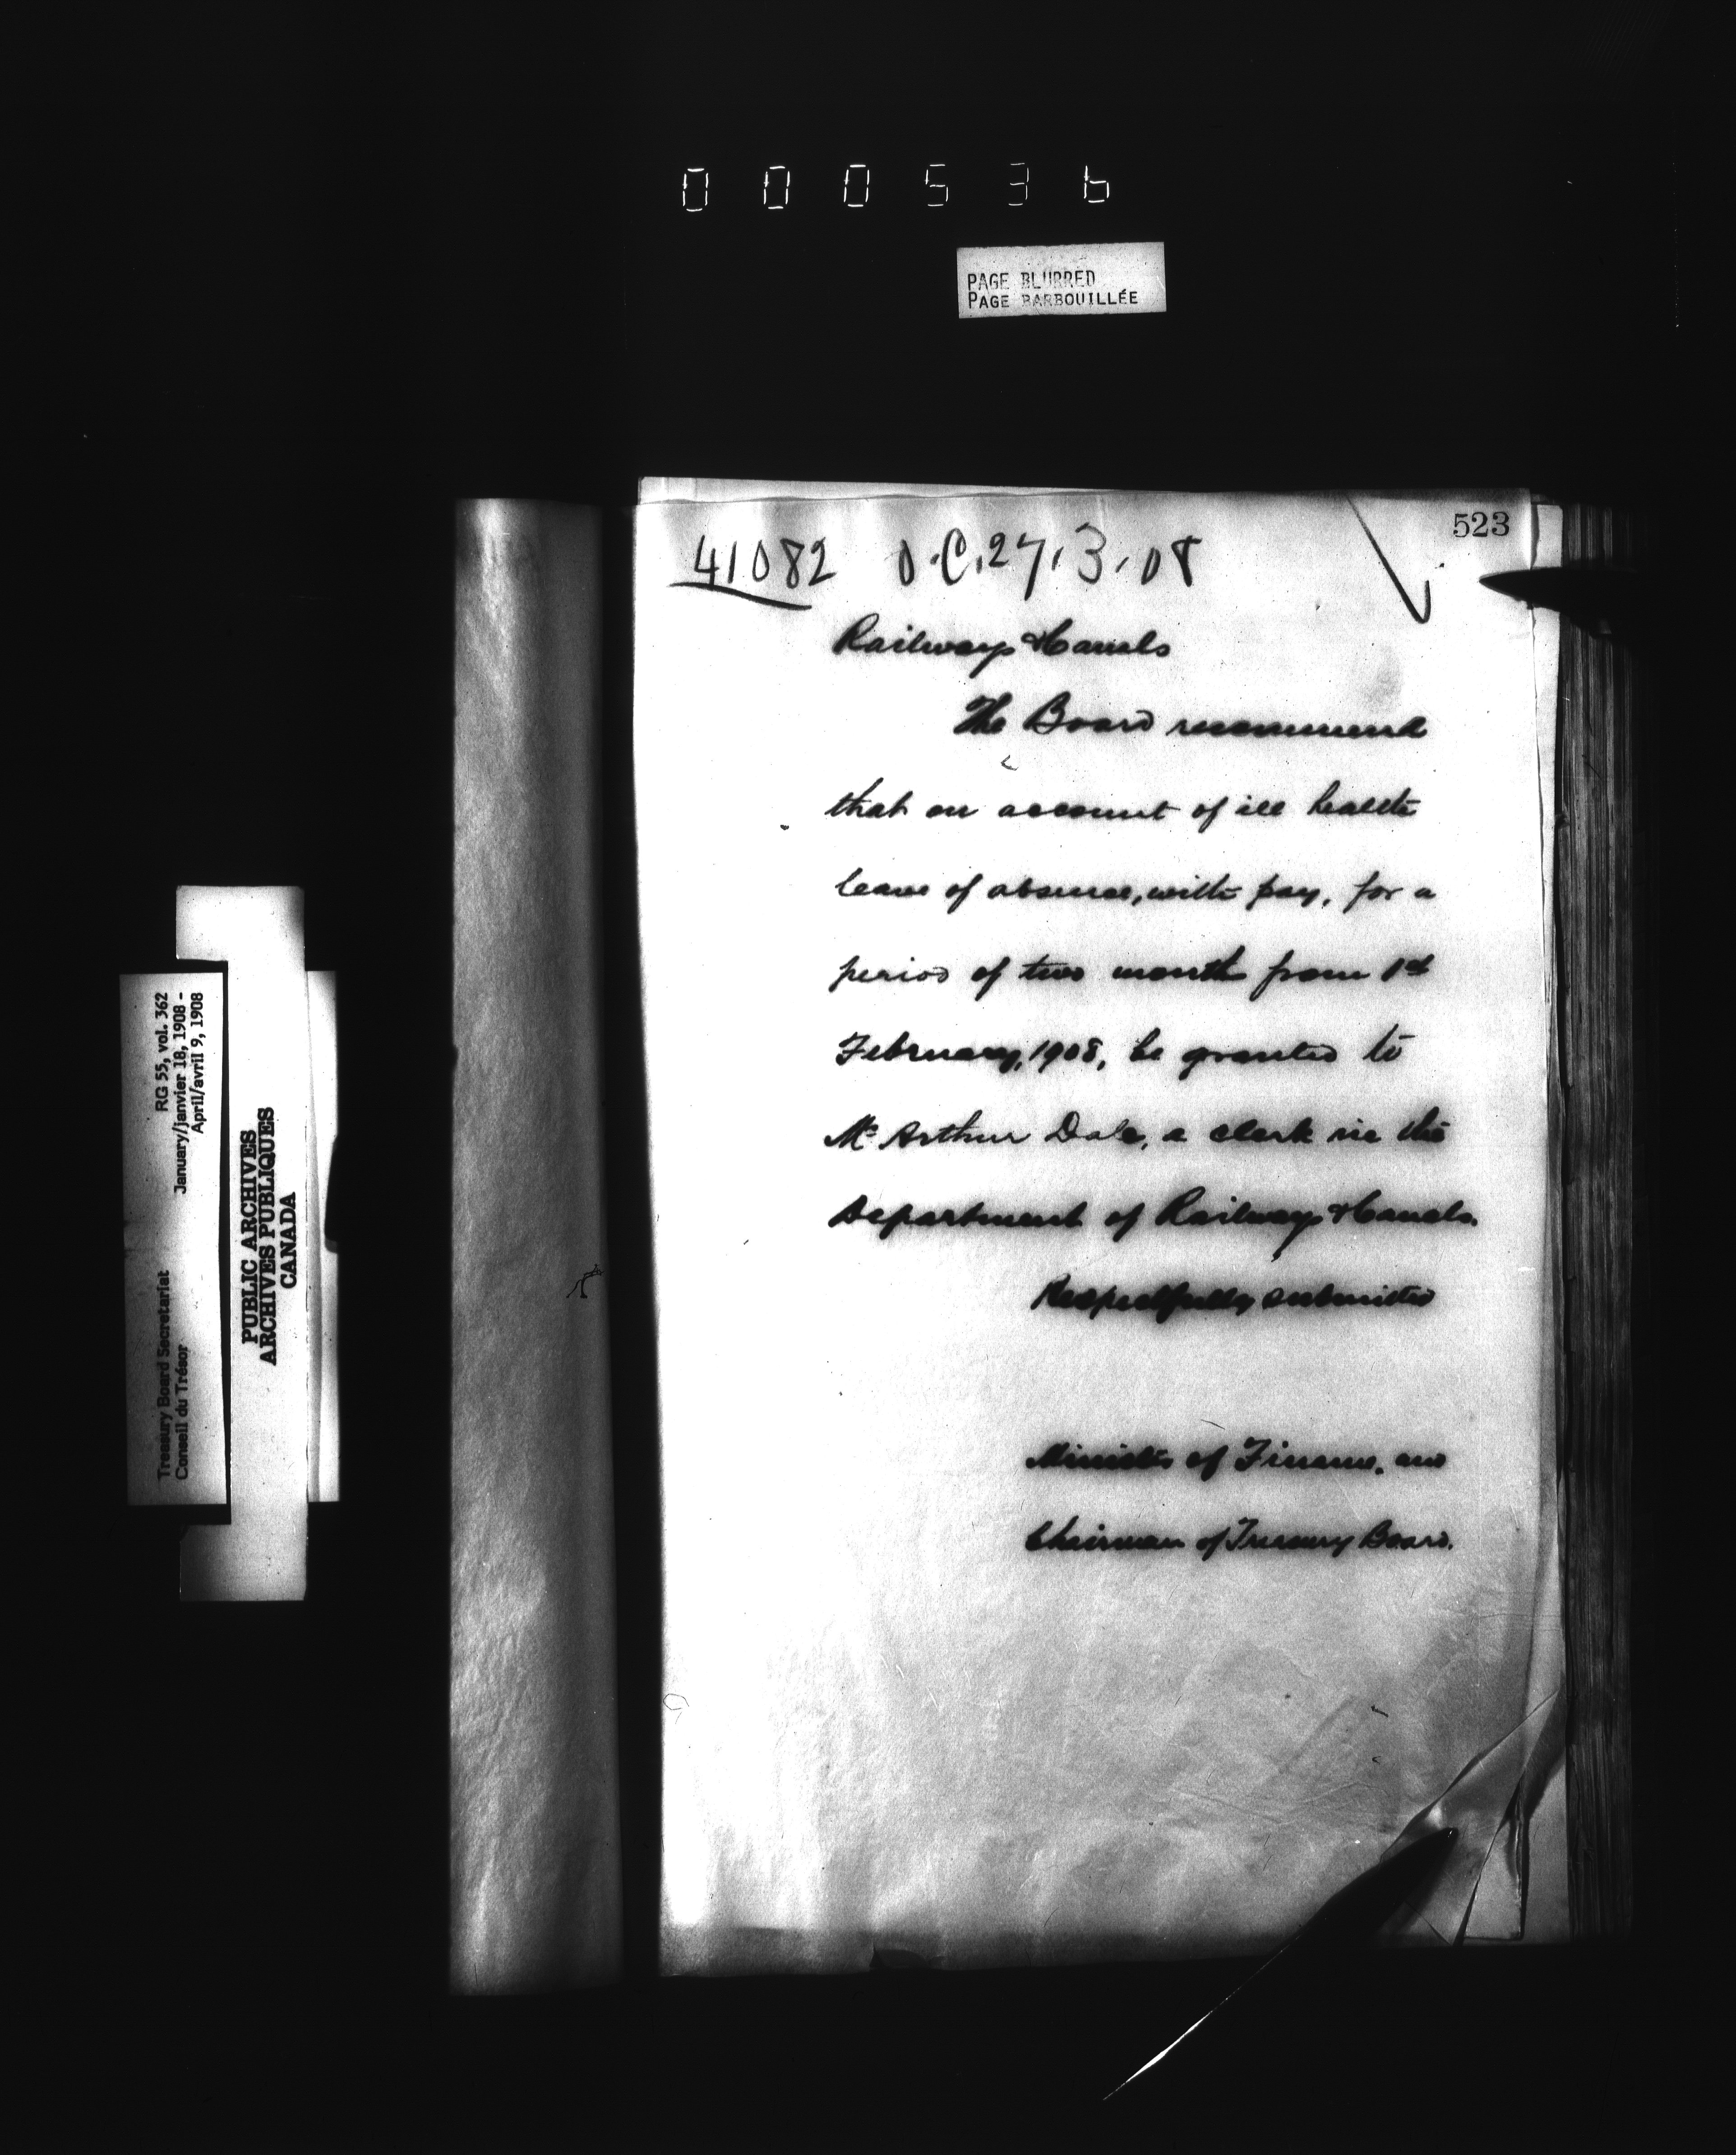 000536
PAGE BLURRED
PAGE BARBOUILLÉE
523
41082 O.C. 27.3.08
Railways & Canals
The Board recommend
that on account of ill health
leave of absence, with pay, for a
period of two months from 1st
February, 1908, be granted to
Mr Arthur Dale, a clerk in the
Department of Railways & Canals.
Respectfully submitted
Minister of Finance, and
Chairman of Treasury Board.
Treasury Board Secretariat RG 55, vol. 362
Conseil du Trésor January/janvier 18, 1908 -
April/avril 9, 1908
PUBLIC ARCHIVES
ARCHIVES PUBLIQUES
CANADA